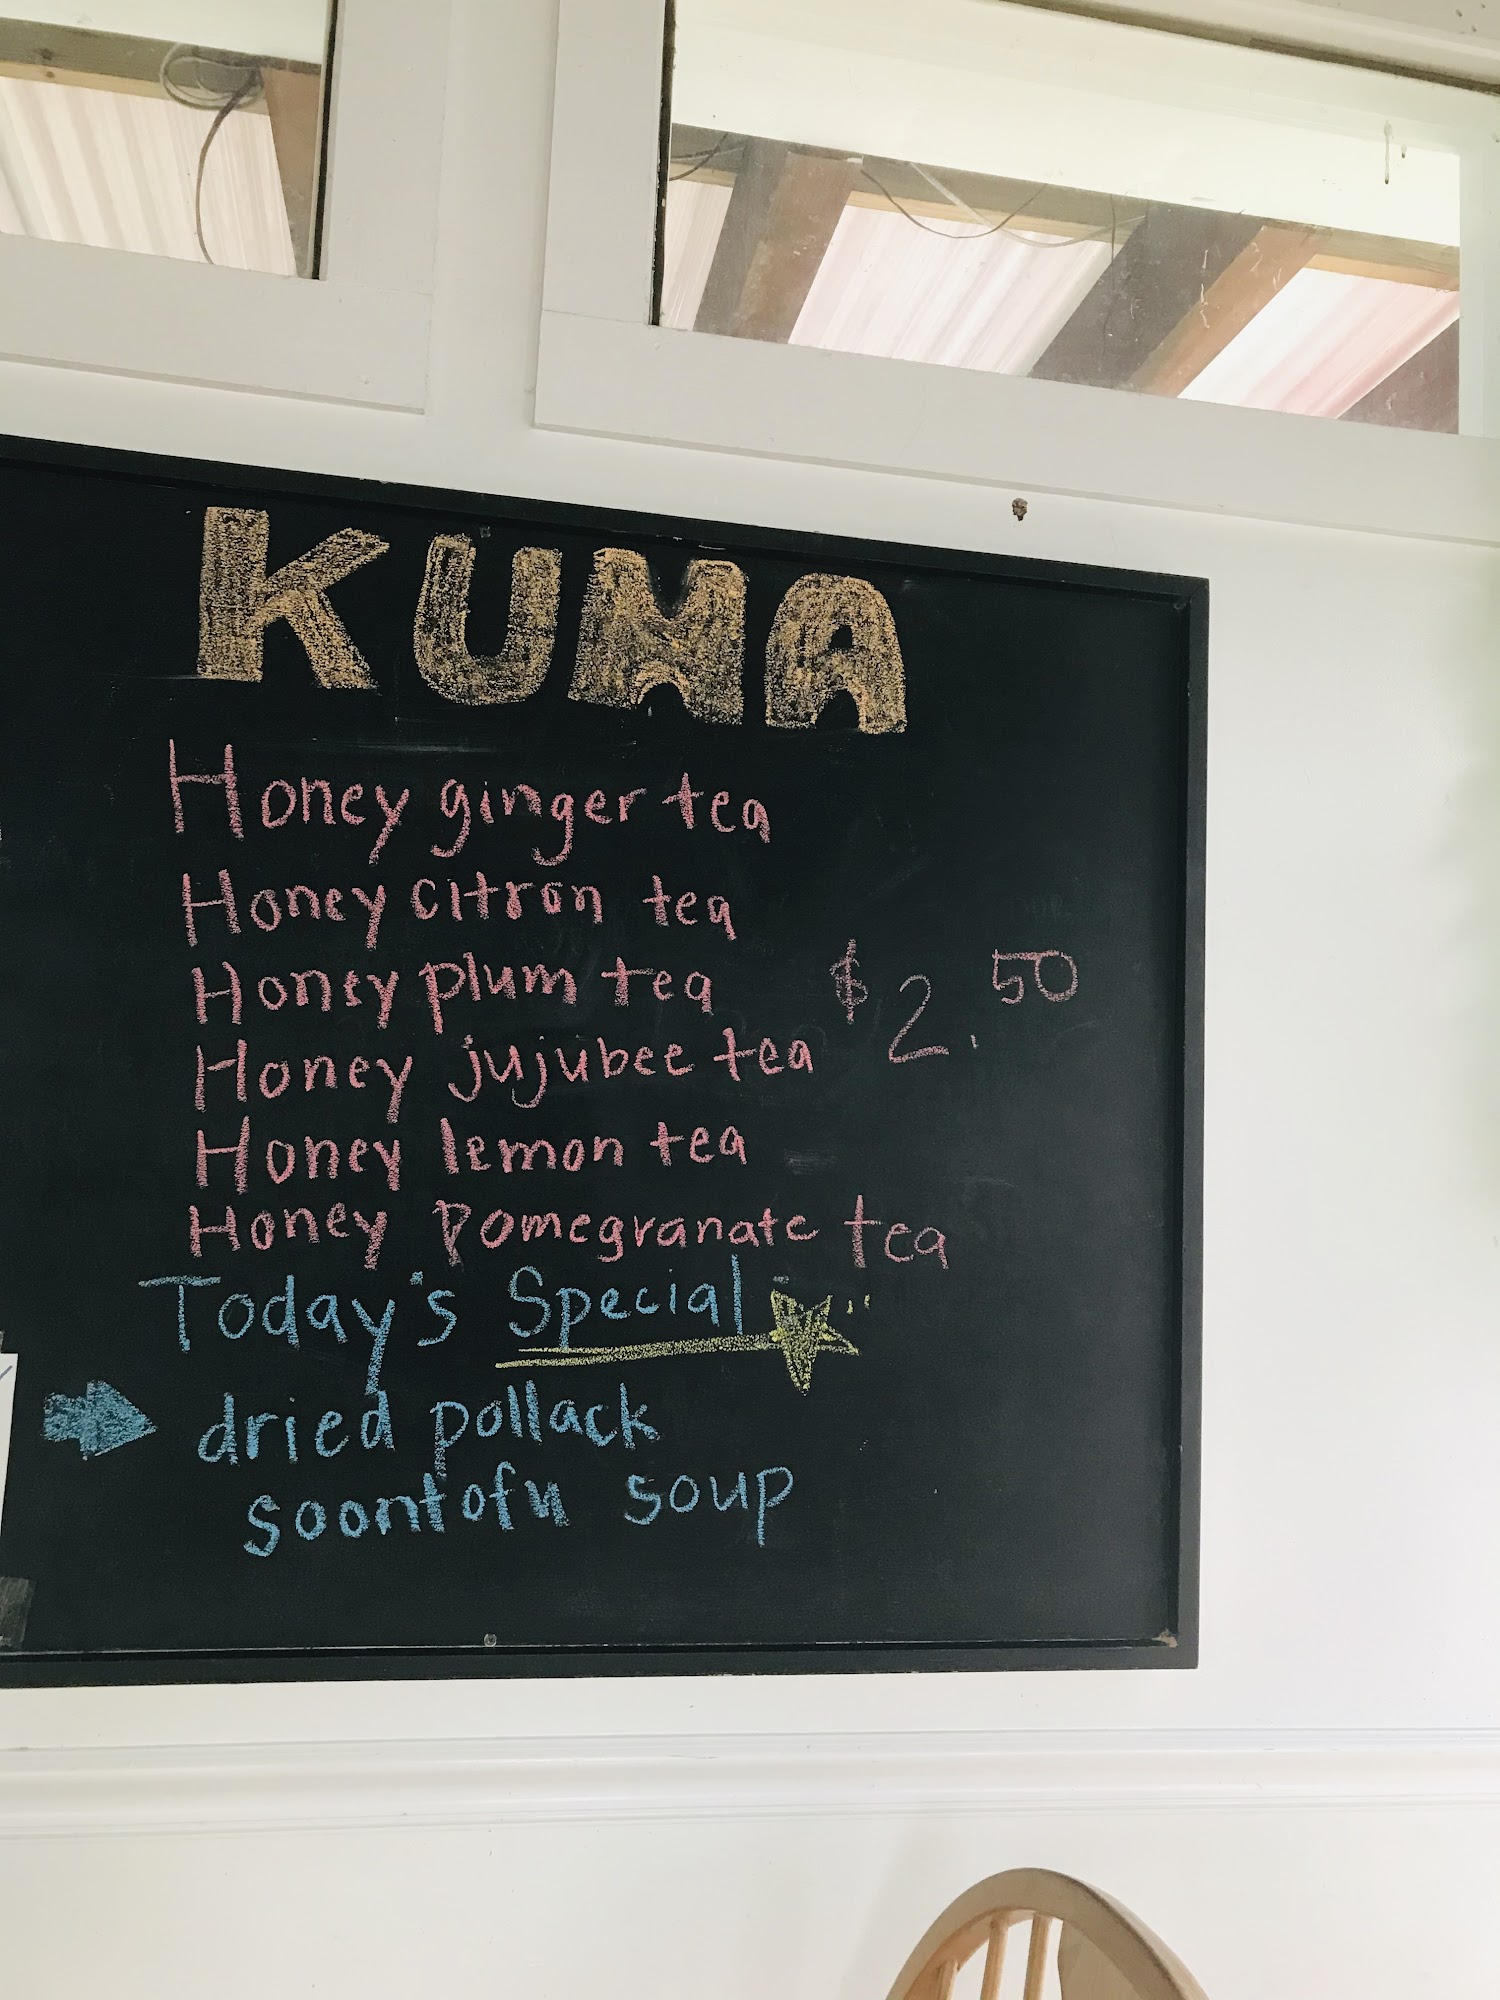 KUMA
Honey ginger tea
Honey citron tea
Honey plum tea $2.50
Honey jujubee tea
Honey lemon tea
Honey pomegranate tea
Today's Special
dried pollack
soontofu soup